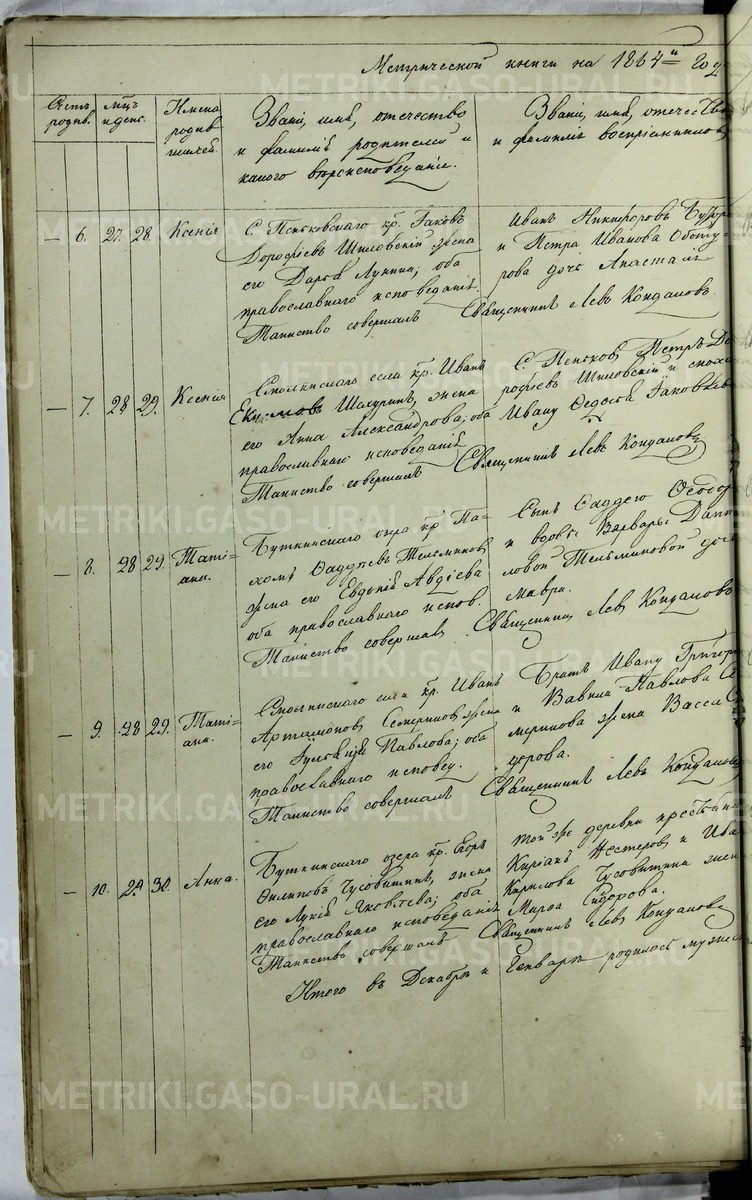 Метрической книги на 1864й год
Счетъ родив.
М-цъ и день.
Имена родив шихся.
Званіе, имя, отечество
и фамилія родителей и
какого вѣроисповеданія.
Званіе, имя, отечество
и фамилія воспріемников
— 6. 27. 28. Ксенія
С. Пеньковскаго кр. Іаковъ
Дорофѣевъ Шиловскій жена
его Дарья Лукина; оба
православнаго исповеданія.
Таинство совершалъ
Иванъ Никифоровъ
и Петра Иванова
рова дочь Анастасія
Священникъ Левъ Кондаковъ.
— 7. 28 29. Ксенія
Смолинскаго села кр. Иванъ
Екимовъ Шахуринъ, жена
его Анна Александрова; оба
православнаго исповеданія
Таинство совершалъ
С. Пеньков. Петръ До
рофѣевъ Шиловскій и
Ивану Ѳедосья Іаковлева
Священникъ Левъ Кондаковъ
— 8. 28 29. Таті=
ана.
Буткинскаго озера кр. Па=
хомъ Ѳаддѣевъ Тельминовъ
жена его Евдокія Авдіева
оба православнаго испов.
Таинство совершал
Сынъ Ѳаддея
и вдовы Варвары
ловой Тельминовой дочь
Мавра.
Священник Лев Кондаковъ
— 9. 28 29. Таті=
ана.
Смолинскаго села кр. Иванъ
Артамонов Семериновъ жена
его Іуліанія Павлова; оба
православнаго исповед.
Таинство совершалъ
Братъ Ивану Григор
и Вавила Павлова Се
меринова жена Васса
дорова.
Священникъ Левъ Кондаковъ
— 10. 29. 30. Анна.
Буткинскаго озера кр. Егоръ
Филиповъ Чусовитинъ, жена
его Лукія Яковлева; оба
православнаго исповеданія
Таинство совершалъ
той же деревни крестьянинъ
Киріакъ Нестеров и Ива
Кирилова Чусовитина жена
Марѳа Сидорова.
Священникъ Левъ Кондаковъ
Итого въ Декабрѣ и Генварѣ родилось мужес
METRIKI.GASO-URAL.RU
METRIKI.GASO-URAL.RU
METRIKI.GASO-URAL.RU
METRIKI.GASO-URAL.RU
METRIKI.GASO-URAL.RU
METRIKI.GASO-URAL.RU
METRIKI.GASO-URAL.RU